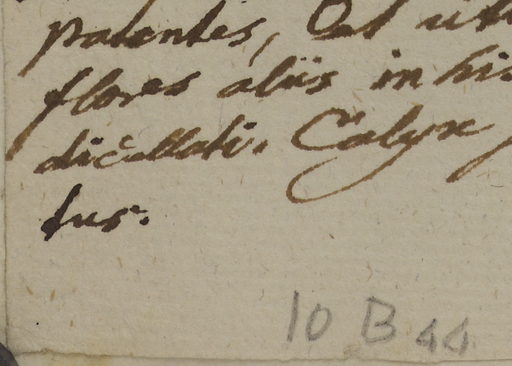 patentes, Vel uti
flores aliis in his
dicellati. Calyx
tus.
10 B 44